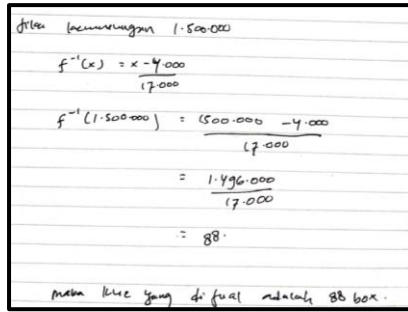 jika keuntungan 1.500.000
f⁻¹(x) = x - 4.000
17.000
f⁻¹(1.500.000) = 1500.000 - 4.000
17.000
= 1.496.000
17.000
= 88.
maka kue yang di jual adalah 88 box.